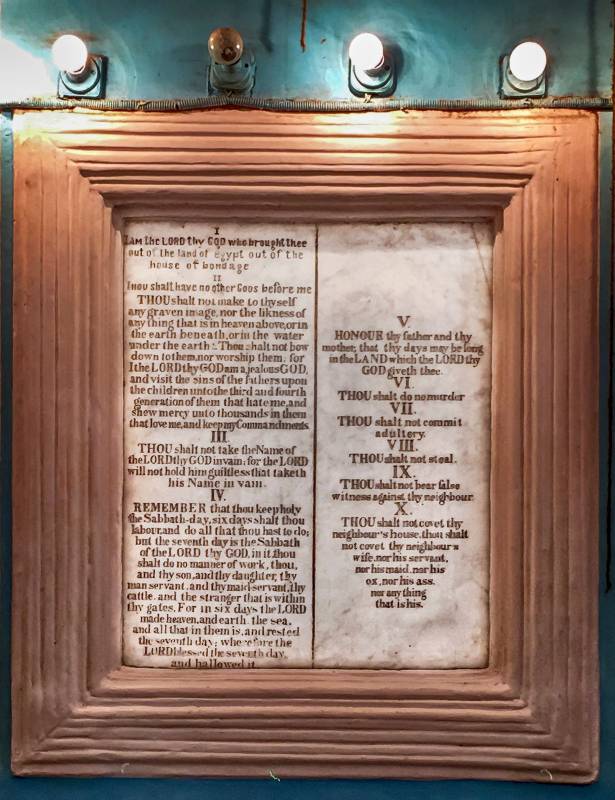 I
I AM the LORD thy GOD who brought thee
out of the land of Egypt out of the
house of bondage
II
Thou shalt have no other Gods before me
THOU shalt not make to thyself
any graven image, nor the likness of
any thing that is in heaven above, or in
the earth beneath, or in the water
under the earth: Thou shalt not bow
down to them, nor worship them: for
I the LORD thy GOD am a jealous GOD,
and visit the sins of the fathers upon
the children unto the third and fourth
generation of them that hate me, and
shew mercy unto thousands in them
that love me, and keep my Commandments.
III.
THOU shalt not take the Name of
the LORD thy GOD in vain: for the LORD
will not hold him guiltless that taketh
his Name in vain.
IV.
REMEMBER that thou keep holy
the Sabbath-day, six days shalt thou
labour, and do all that thou hast to do;
but the seventh day is the Sabbath
of the LORD thy GOD, in it, thou
shalt do no manner of work, thou,
and thy son, and thy daughter, thy
man servant, and thy maid-servant, thy
cattle, and the stranger that is within
thy gates. For in six days the LORD
made heaven, and earth, the sea,
and all that in them is, and rested
the seventh day; wherefore the
LORD blessed the seventh day,
and hallowed it
V.
HONOUR thy father and thy
mother, that thy days may be long
in the LAND which the LORD thy
GOD giveth thee.
VI.
THOU shalt do no murder
VII.
THOU shalt not commit
adultery.
VIII.
THOU shalt not steal.
IX.
THOU shalt not bear false
witness against thy neighbour.
X.
THOU shalt not covet thy
neighbour's house, thou shalt
not covet thy neighbour's
wife, nor his servant,
nor his maid, nor his
ox, nor his ass,
nor any thing
that is his.